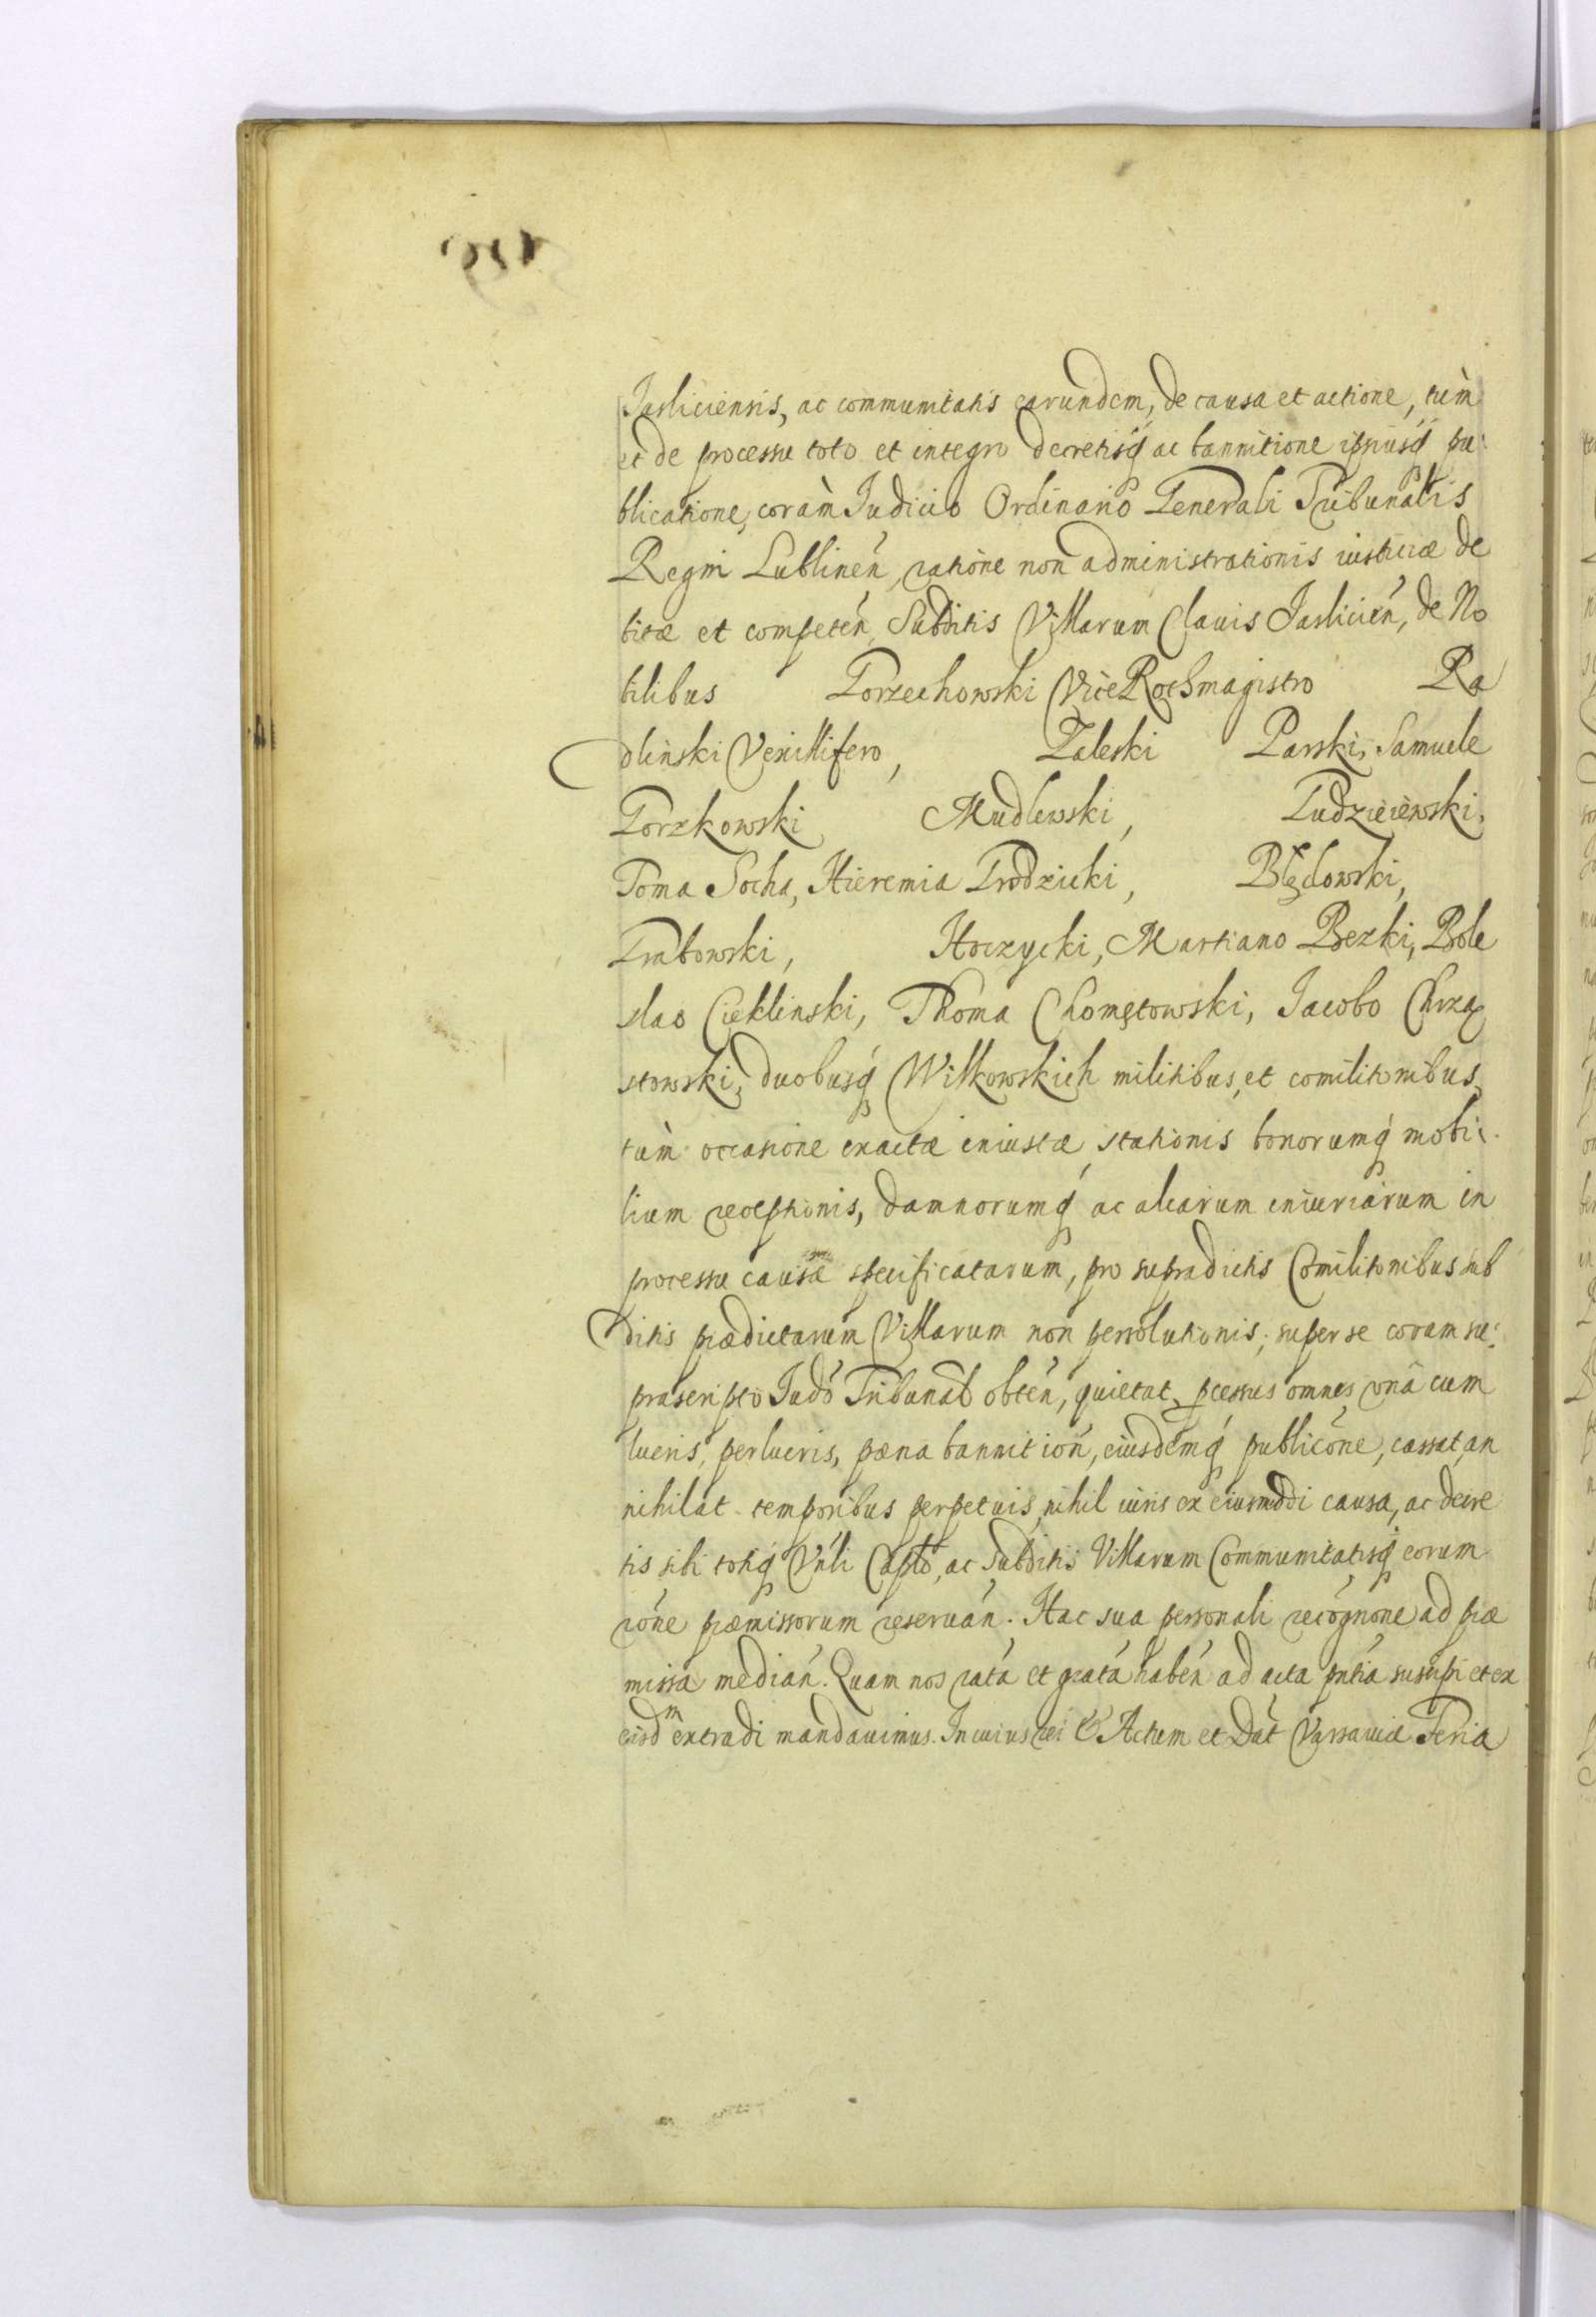 Jasliciensis, ac communitatis earundem, de causa et actione, tùm
et de processu toto et integro decretisq́ ac bannitione ipsiusq́ pu:
blicatione, coràm Judicio Ordinario Generali Tribunalis
Regni Lublineń, ratione non administrationis iustitiæ de
bitæ et competeń Subditis Villarum Clavis Jaslicień, de No
bilibus Gorzechowski ViceRothmagistro Ra
dlinski Vexillifero, Zaleski Parski, Samuele
Gorzkowski Mudlewski, Gudzieiewski,
Toma Socha, Hieremia Grodzicki, Błędowski,
Grabowski, Hoczycki, Martiano Bezki, Bole
slao Cieklinski, Thoma Chomętowski, Jacobo Chrzą
stowski, duobusq́ Wilkowskich militibus, et comilitonibus,
tùm occasione exactæ iniustæ stationis bonorumq́ mobi:
lium receptionis, damnorumq́ ac aliarum iniuriarum in
processu causæ specificatarum, pro supradictis Comilitonibus sub
ditis prædictarum Villarum non persolutionis, super se coram su:
prascripto Judó Tribunal obteń, quietat, pcessus omnes unà cum
lucris, perlucris, pæna bannitioń, eiusdemq́ publicóne, cassat, an
nihilat temporibus perpetuis, nihil iuris ex eiusmodi causa, ac decre
tis sibi totiq́ Vnli Caplo, ac Subditis Villarum Communitatisq́ eorum
róne præmissorum reserváń. Hac sua personali recognóne ad præ
missa mediáń. Quam nos ratá et gratá habéń ad acta pntia suscipi et ex
eisdᵐ extradi mandavimus. In cuius rei & Actum et Dát Varsaviæ Feria